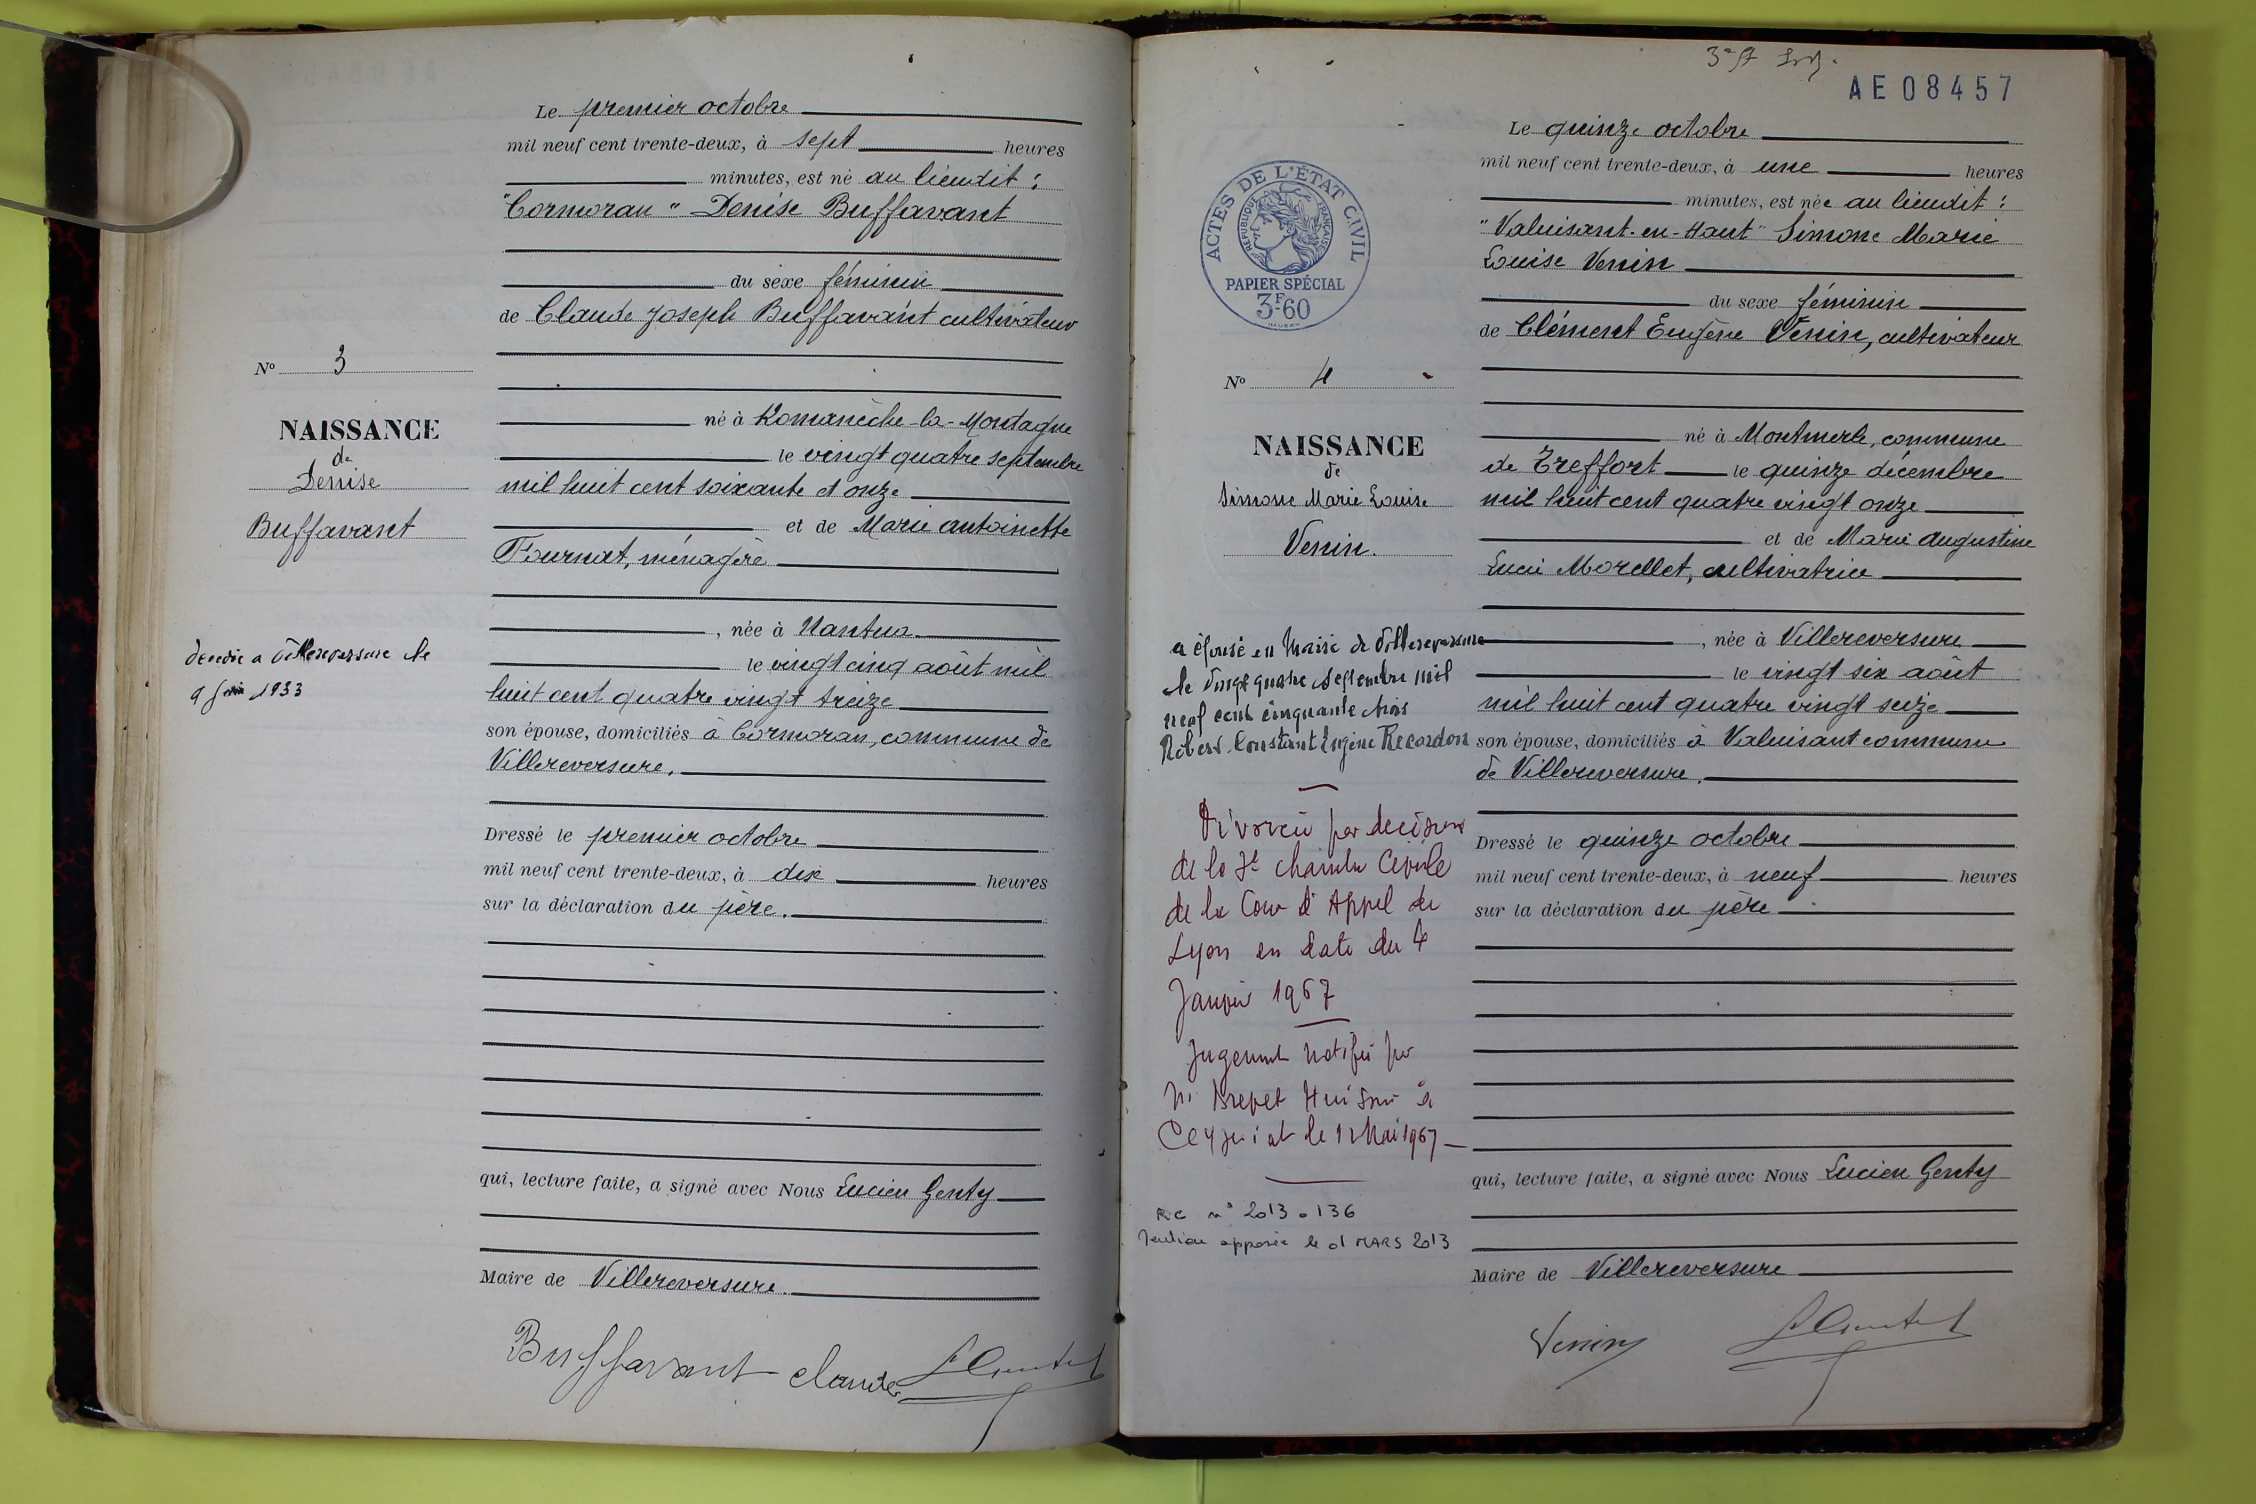 Le premier octobre
mil neuf cent trente-deux, à sept heures
minutes, est né au lieudit :
"Cormoran" Denise Buffavant
du sexe féminin
de Claude Joseph Buffavant cultivateur
N° 3
né à Romanèche-la-Montagne
NAISSANCE
de
Denise
Buffavant
le vingt quatre septembre
mil huit cent soixante et onze
et de Marie Antoinette
Fournat, ménagère
, née à Nantua
le vingt cinq août mil
huit cent quatre vingt treize
décédée à Villereversure le
9 1933
son épouse, domiciliés à Cormoran, commune de
Villereversure.
Dressé le premier octobre
mil neuf cent trente-deux, à dix heures
sur la déclaration du père.
qui, lecture faite, a signé avec Nous Lucien Genty
Maire de Villereversure.
Buffavant Claude
AE08457
Le quinze octobre
mil neuf cent trente-deux, à une heures
minutes, est née au lieudit :
"Valuisant-en-Haut" Simone Marie
Louise Venin
du sexe féminin
de Clément Eugène Venin, cultivateur
ACTES DE L'ÉTAT CIVIL
RÉPUBLIQUE FRANÇAISE
PAPIER SPÉCIAL
3F60
N° 4
NAISSANCE
de
Simone Marie Louise
Venin.
né à Montmerle, commune
de Treffort le quinze décembre
mil huit cent quatre vingt onze
et de Marie Augustine
Lucie Morellet, cultivatrice
, née à Villereversure
le vingt six août
mil huit cent quatre vingt seize
son épouse, domiciliés à Valuisant commune
de Villereversure.
Dressé le quinze octobre
mil neuf cent trente-deux, à neuf heures
sur la déclaration du père
a épousé en Mairie de Villereversure
le vingt quatre septembre mil
neuf cent cinquante trois
Robert Constant Eugène Recordon
Divorcée par décision
de la chambre Civile
de la Cour d'Appel de
Lyon en date du 4
Janvier 1967
Jugement notifié par
Huissier à
Ceyzériat le 12 Mai 1967
RC n° 2013.136
Mention apposée le 01 MARS 2013
qui, lecture faite, a signé avec Nous Lucien Genty
Maire de Villereversure
Venin